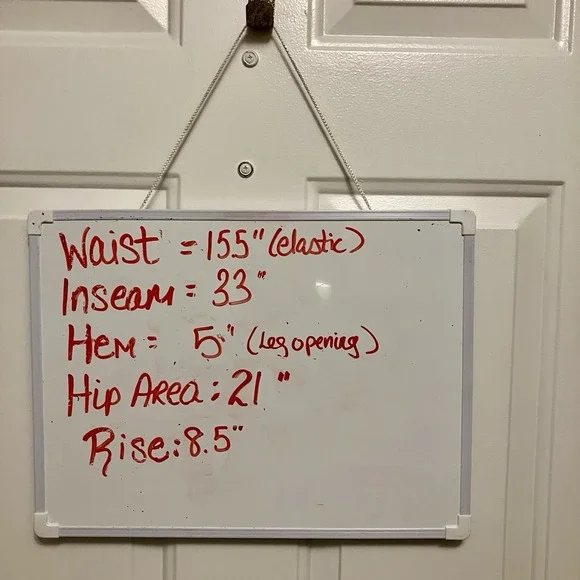 Waist = 155" (elastic)
Inseam = 33"
Hem = 5" (Leg opening)
Hip Area : 21"
Rise : 8.5"